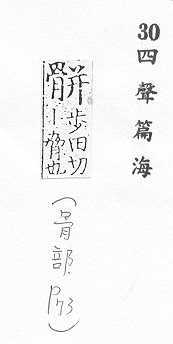 30四聲篇海
骿步田切
丨脅也
(骨部, P73)